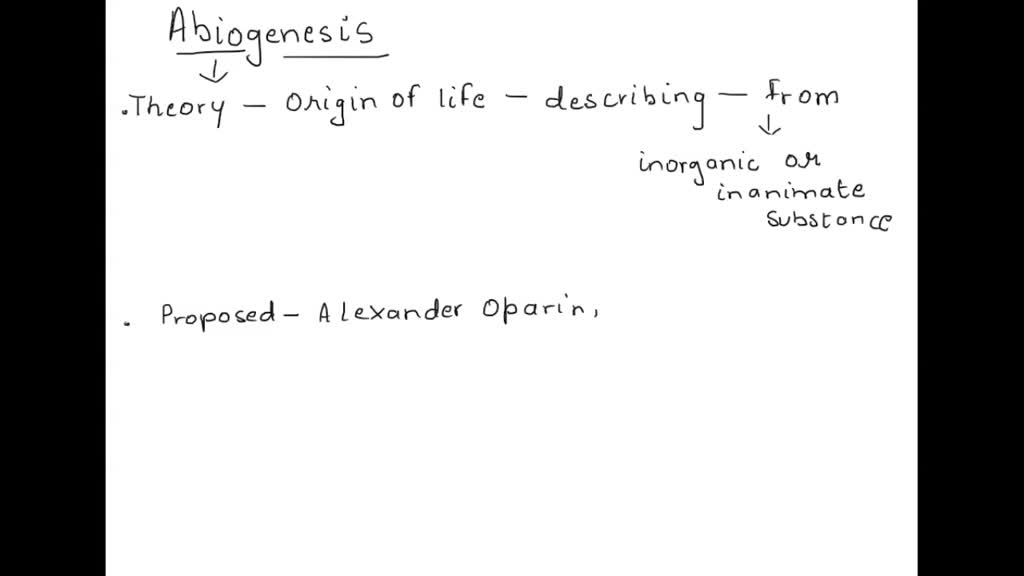 Abiogenesis
↓
.Theory – Origin of life – describing – from
↓
inorganic or
inanimate
substance
. Proposed – Alexander Oparin,